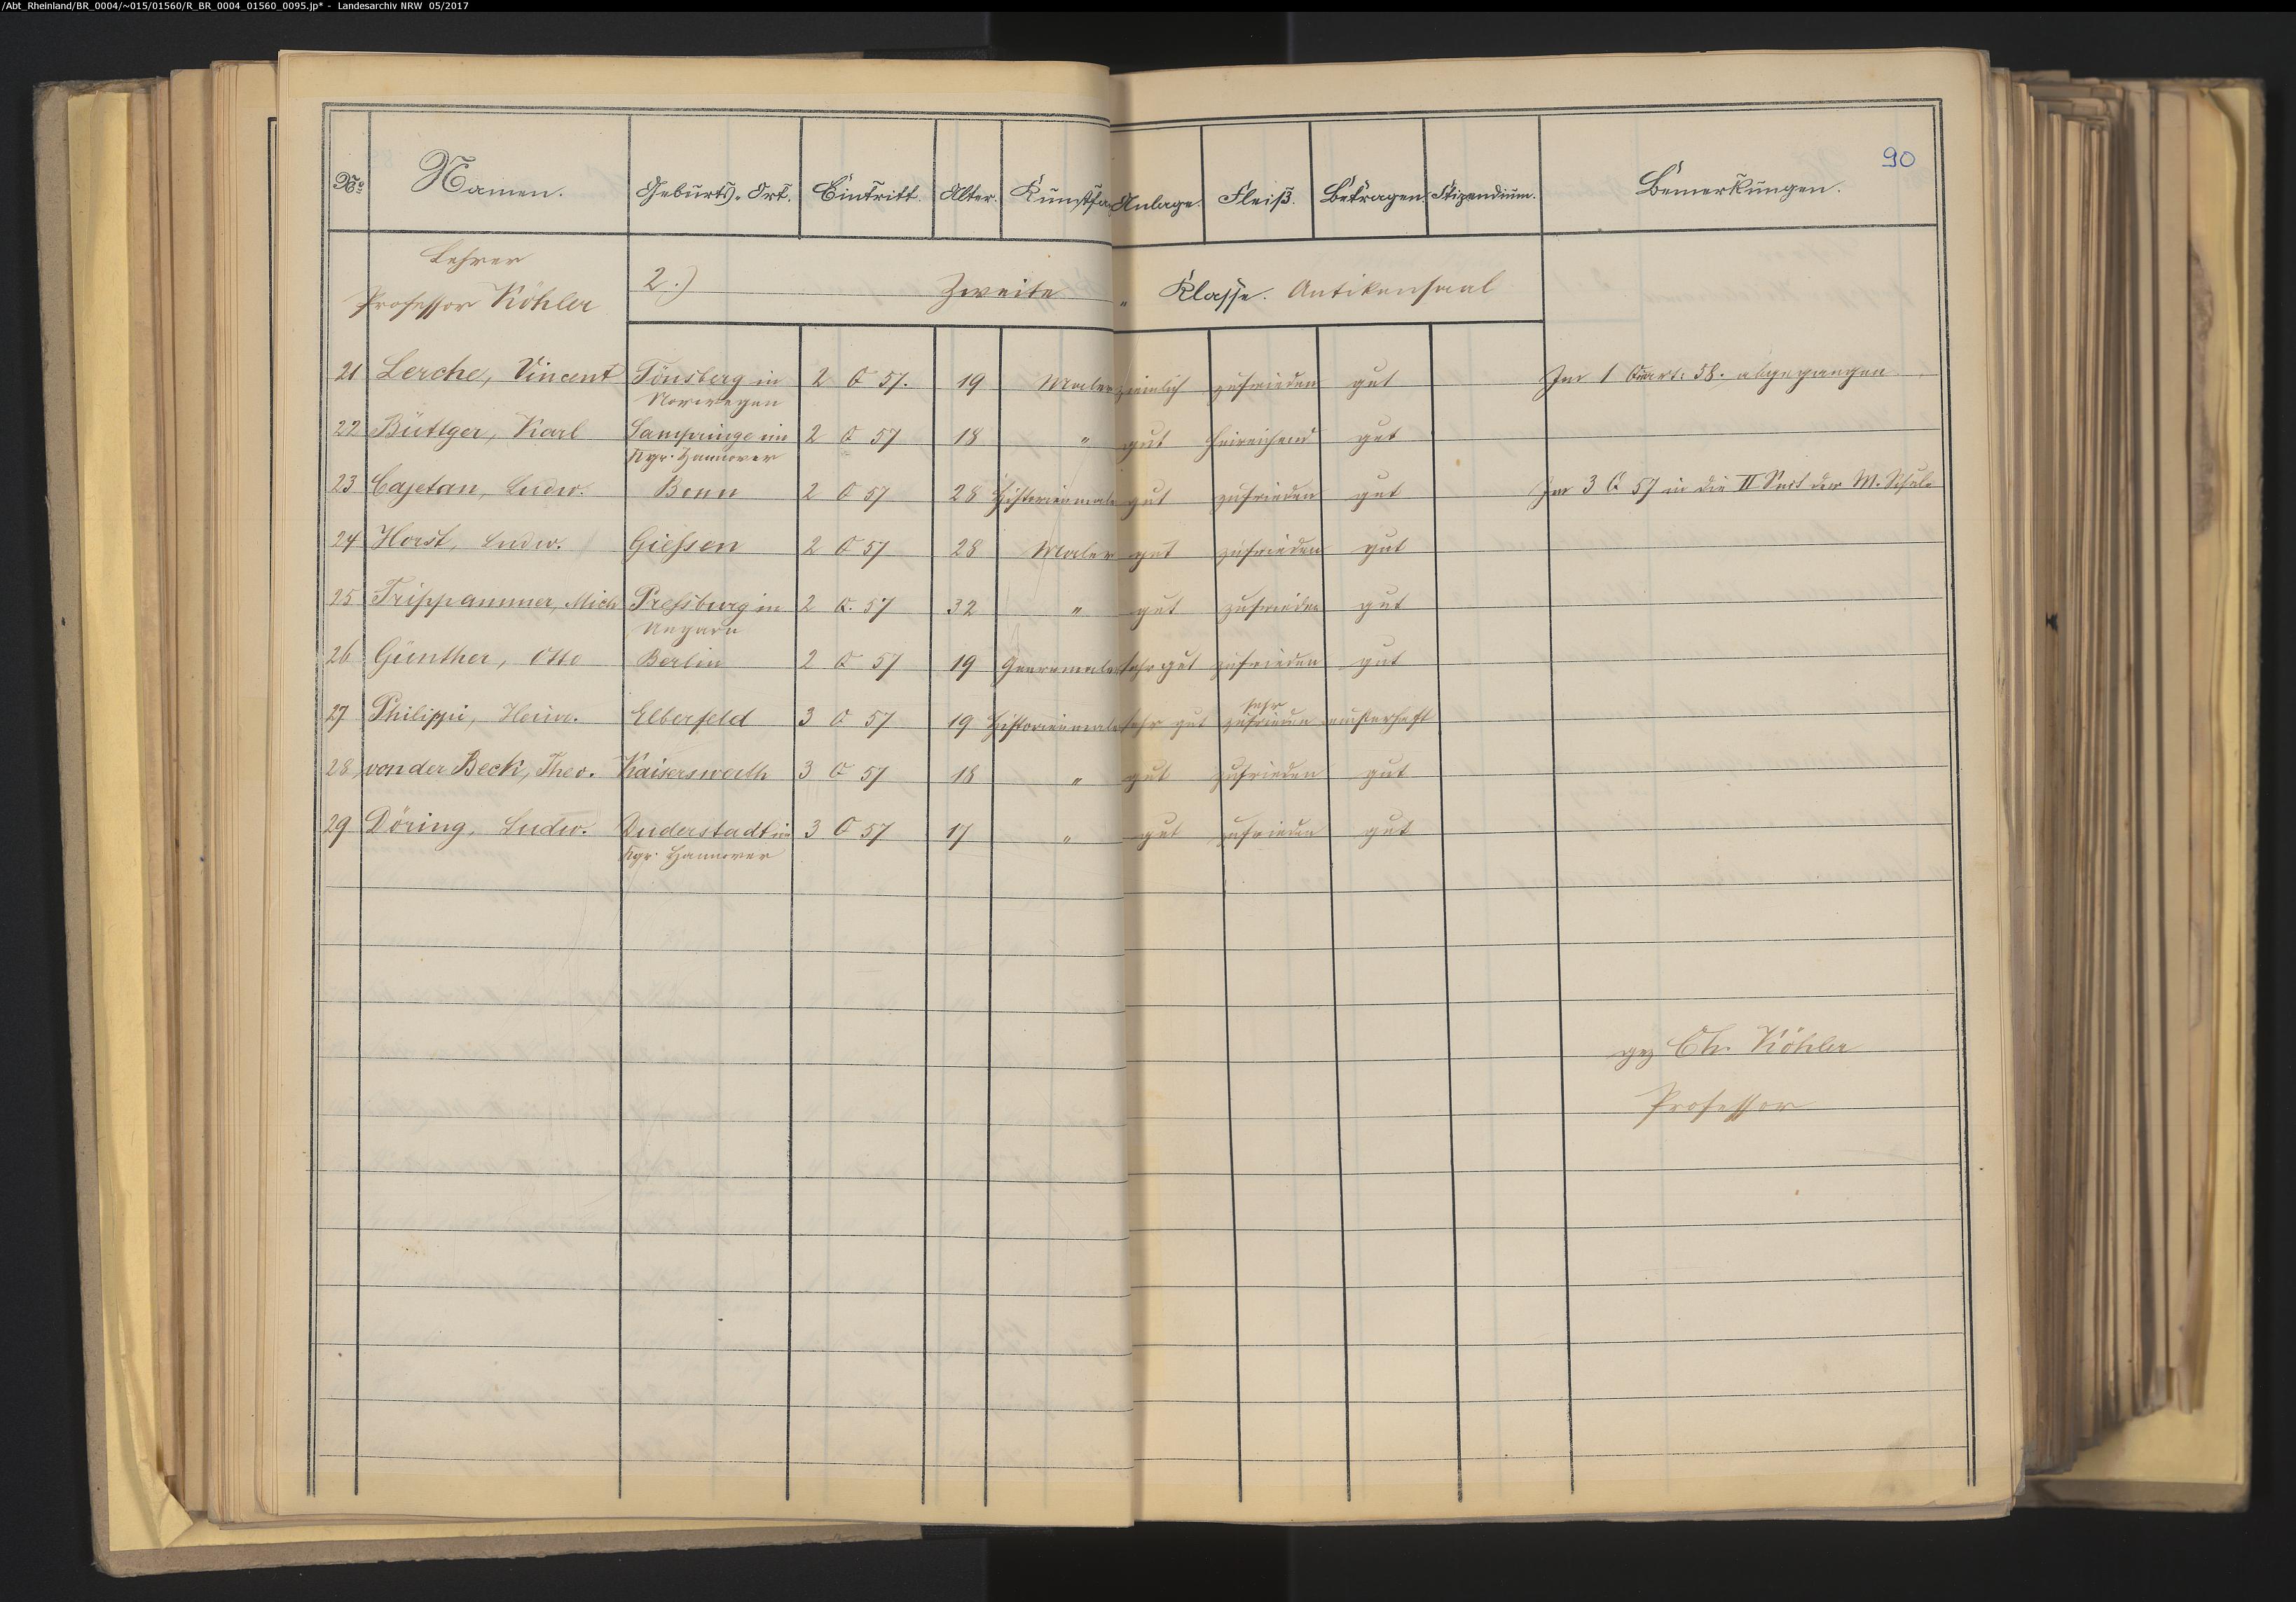 /Abt_Rheinland/BR_0004/~015/01560/R_BR_0004_01560_0095.jp* - Landesarchiv NRW 05/2017
90
No. Namen. Geburts-Ort. Eintritt. Alter. Kunstfa Anlage. Fleiß. Betragen. Stipendium. Bemerkungen.
Lehrer
Professor Köhler
2.) Zweite " Klasse. Antikensaal
21 Lerche, Vincent Tönsberg in Norwegen 2 Q 57. 19 Maler ziemlich zufrieden gut Im 1 Quart: 58. abgegangen
22 Büttger, Karl Lamspringe im Kgr. Hannover 2 Q 57 18 " gut hinreichend gut
23 Cajetan, Ludw. Bonn 2 Q 57 28 Historienmaler gut zufrieden gut Im 3 Q 57 in die II Sect der M. Schule
24 Horst, Ludw. Giessen 2 Q 57 28 Maler gut zufrieden gut
25 Trippammer, Mich Pressburg in Ungarn 2 Q. 57 32 " gut zufrieden gut
26 Günther, Otto Berlin 2 Q 57 19 Genremaler sehr gut zufrieden gut
27 Philippi, Heinr. Elberfeld 3 Q 57 19 Historienmaler sehr gut sehr zufrieden musterhaft
28 von der Beck, Theo. Kaiserswerth 3 Q 57 18 " gut zufrieden gut
29 Döring, Ludw. Duderstadt im Kgr. Hannover 3 Q 57 17 " gut zufrieden gut
gez Chr. Köhler
Professor